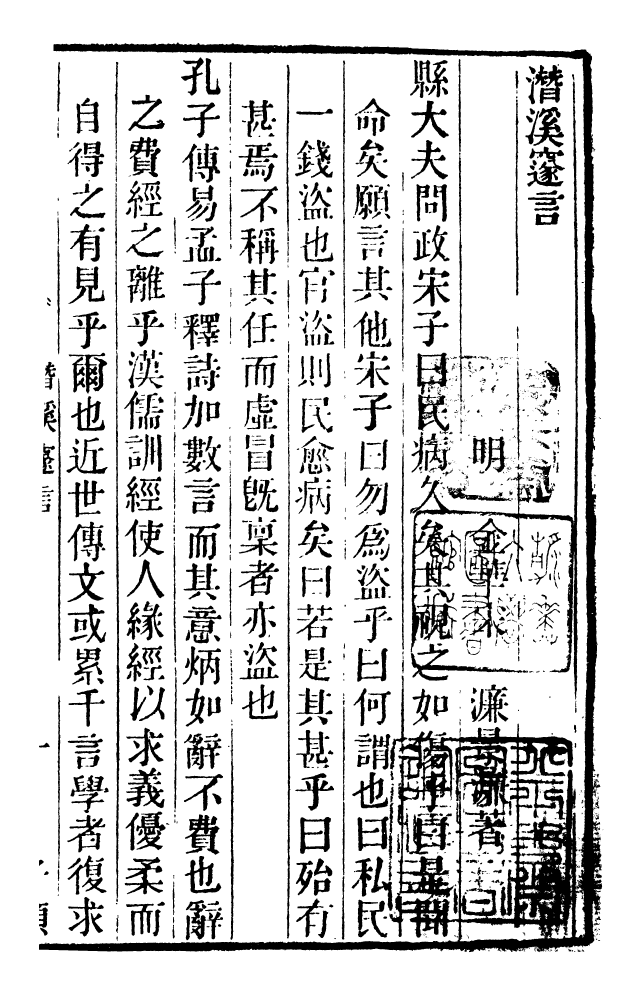 潛溪邃言
明 金華宋 濂景濂著
縣大夫問政宋子曰民病久矣其視之如傷乎曰是聞
命矣願言其他宋子曰勿為盜乎曰何謂也曰私民
一錢盜也官盜則民愈病矣曰若是其甚乎曰殆有
甚焉不稱其任而虛冒既稟者亦盜也
孔子傳易孟子釋詩加數言而其意炳如辭不費也辭
之費經之離乎漢儒訓經使人緣經以求義優柔而
自得之有見乎爾也近世傳文或累千言學者復求
潛溪邃言 一